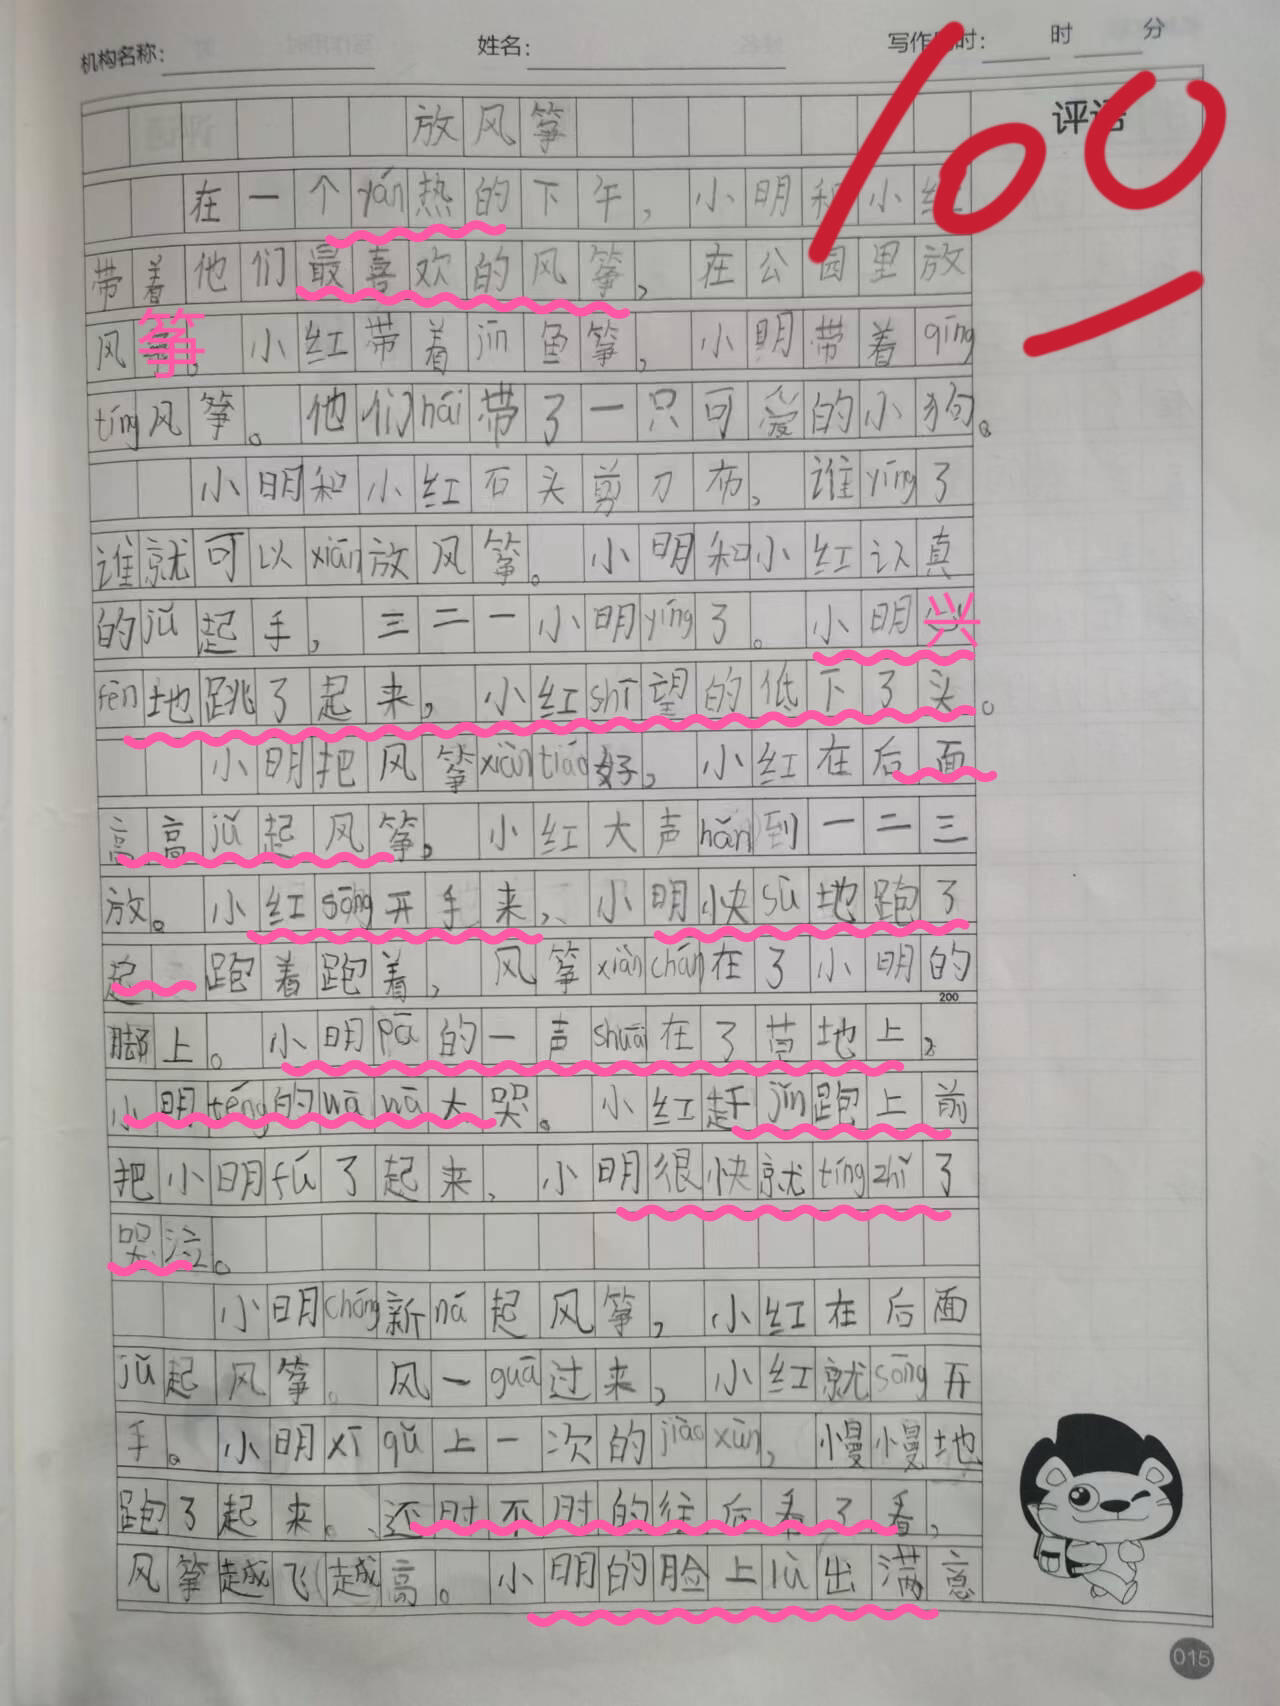 机构名称： 姓名： 写作用时： 时 分
100
评语
放风筝
在一个yán热的下午，小明和小红
带着他们最喜欢的风筝，在公园里放
风筝，小红带着jīn鱼筝，小明带着qīng
tíng风筝。他们hái带了一只可爱的小狗。
小明和小红石头剪刀布，谁yíng了
谁就可以xiān放风筝。小明和小红认真
的jǔ起手，三二一小明yíng了。小明兴
fèn地跳了起来，小红shī望的低下了头。
小明把风筝xiàntiáo好，小红在后面
高高jǔ起风筝。小红大声hǎn到一二三
放。小红sōng开手来、小明快sù地跑了
起 跑着跑着，风筝xiànchán在了小明的
200
脚上。小明pā的一声shuāi在了草地上，
小明téng的wāwā大哭。小红赶jǐn跑上前
把小明fú了起来，小明很快就tíngzhǐ了
哭泣。
小明chóng新ná起风筝，小红在后面
jǔ起风筝。风一guā过来，小红就sōng开
手。小明xīqǔ上一次的jiàoxùn，慢慢地
跑了起来。、还时不时的往后看了看，
风筝越飞越高。小明的脸上lù出满意
015